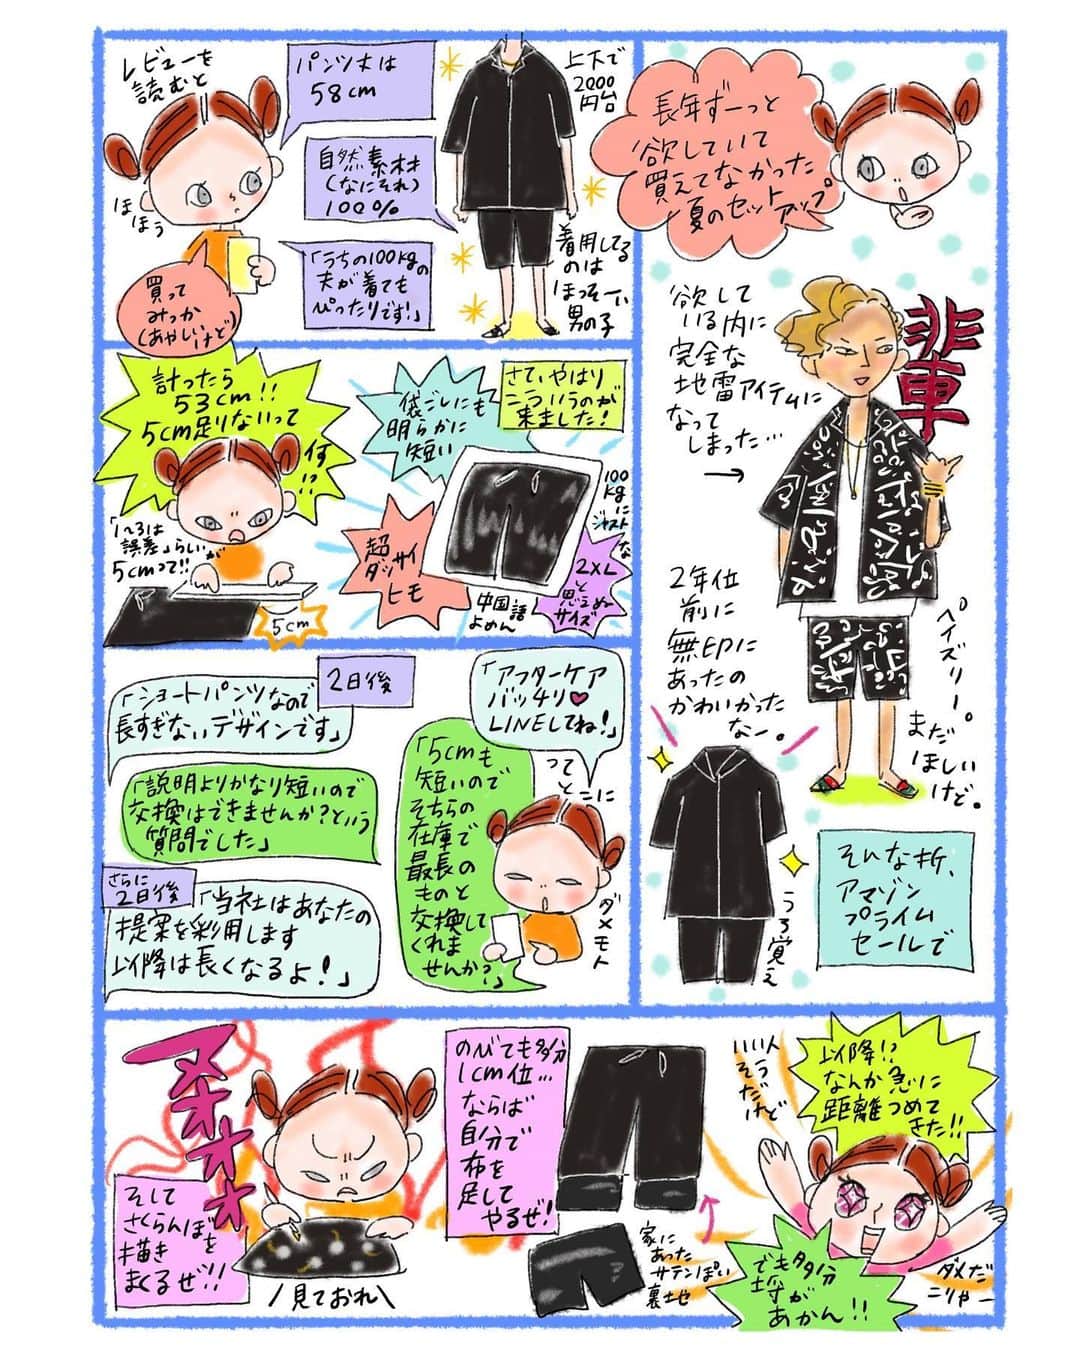 長年ずーっと
欲していて
買えてなかった
夏のセット
アップ
欲して
いる内に
完全な
地雷アイテムに
なって
しまった…
→
輩
ペイズリー。
まだ
ほしい
けど。
2年位
前に
無印に
あったの
かわいかった
なー。
うろ覚え
そんな折、
アマゾン
プライム
セールで
上下で
2000
円台
着用してる
のは
ほっそーい
男の子
レビューを
読むと
パンツ丈は
58cm
自然素材
(なにそれ)
100%
「うちの100kgの
夫が着ても
ぴったりです!」
ほほう
買って
みっか
(あやしいけど)
さて、やはり
こういうのが
来ました!
袋ごしにも
明らかに
短い
100
kg
に
ジャストな
2XL
と
思えぬ
サイズ
中国語
よめん
超
ダッサイ
ヒモ
計ったら
53cm!!
5cm足りないって
何!?
「1~3は
誤差」らしいが
5cmって!!
5cm
「アフターケア
バッチリ♥
LINEしてね!」
ってとこに
「5cmも
短いので
そちらの
在庫で
最長の
ものと
交換して
くれま
せんか?」
ダメモト
2日後
「ショートパンツなので
長すぎないデザインです」
「説明よりかなり短いので
交換はできませんか?という
質問でした」
さらに
2日後
「当社はあなたの
提案を採用します
以降は長くなるよ!」
以降!?
なんか急に
距離つめて
きた!!
いい人
そう
だけど
でも多分
埒が
あかん!!
ダメだ
こりゃー
のびても多分
1cm位…
ならば
自分で
布を
足して
やるぜ!
家に
あった
サテンぽい
裏地
そして
さくらんぼを
描き
まくるぜ!!
\見ておれ/